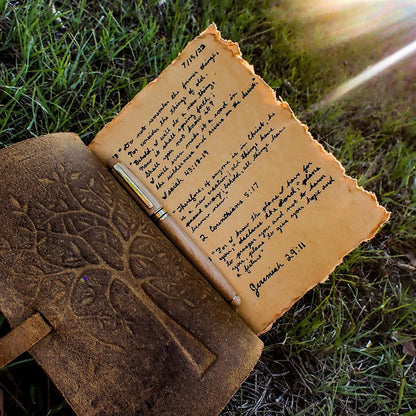 7/15/23
"Do not remember the former things,
Nor consider the things of old.
Behold, I will do a new thing,
Now it shall spring forth;
Shall you not know it?
I will even make a road in
the wilderness and rivers in the desert
Isaiah 43:18-19
"Therefore, if anyone is in Christ, he
is a new creation; old things have
passed away; behold, all things have
become new.
2 Corinthians 5:17
"For I know the plans I have for
you," declares the Lord, "plans
to prosper you and not to harm
you, plans to give you hope and
a future.
Jeremiah 29:11